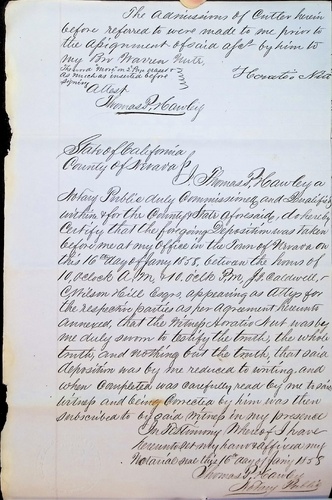 The admissions of Cutler herein
before referred to were made to me prior to
the assignment of said a/c by him to
my Bro Warren Nutt.
as much as inserted before
signing
Horatio Nutt
Attest
Thomas P. Hawley
State of California
County of Nevada } I, Thomas P. Hawley a
Notary Public duly Commissioned and qualified
within & for the County & State aforesaid, do hereby
Certify that the foregoing Deposition was taken
before me at my office in the Town of Nevada on
this 16th day of Jany 1858, between the hours of
10, oclock A.M. & 10. oclk P.M. J.I. Caldwell, &
C. Wilson Hill Esqrs, appearing as Attys for
the respective parties as per Agreement hereunto
annexed, that the Witness Horatio Nutt was by
me duly sworn to testify the truth, the whole
truth, and nothing but the truth, that said
deposition was by me reduced to writing, and
when Completed was carefully read by me to said
witness and being Corrected by him was then
subscribed to by said witness in my presence
In testimony Whereof I have
hereunto set my hand & affixed my
Notarial seal this 16th day of Jany 1858
Thomas P. Hawley
Notary Public